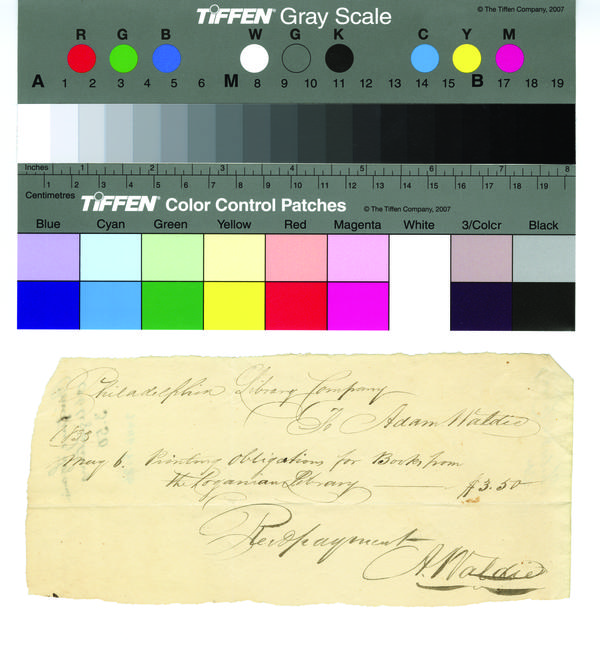 TIFFEN® Gray Scale
© The Tiffen Company, 2007
R G B W G K C Y M
A 1 2 3 4 5 6 M 8 9 10 11 12 13 14 15 B 17 18 19
Inches 1 2 3 4 5 6 7 8
Centimetres 1 2 3 4 5 6 7 8 9 10 11 12 13 14 15 16 17 18 19
TIFFEN® Color Control Patches
© The Tiffen Company, 2007
Blue Cyan Green Yellow Red Magenta White 3/Color Black
Philadelphia Library Company
To Adam Waldie
1833
May 6. Printing Obligations for Books from
the Loganian Library — $3.50
Recd payment
A. Waldie